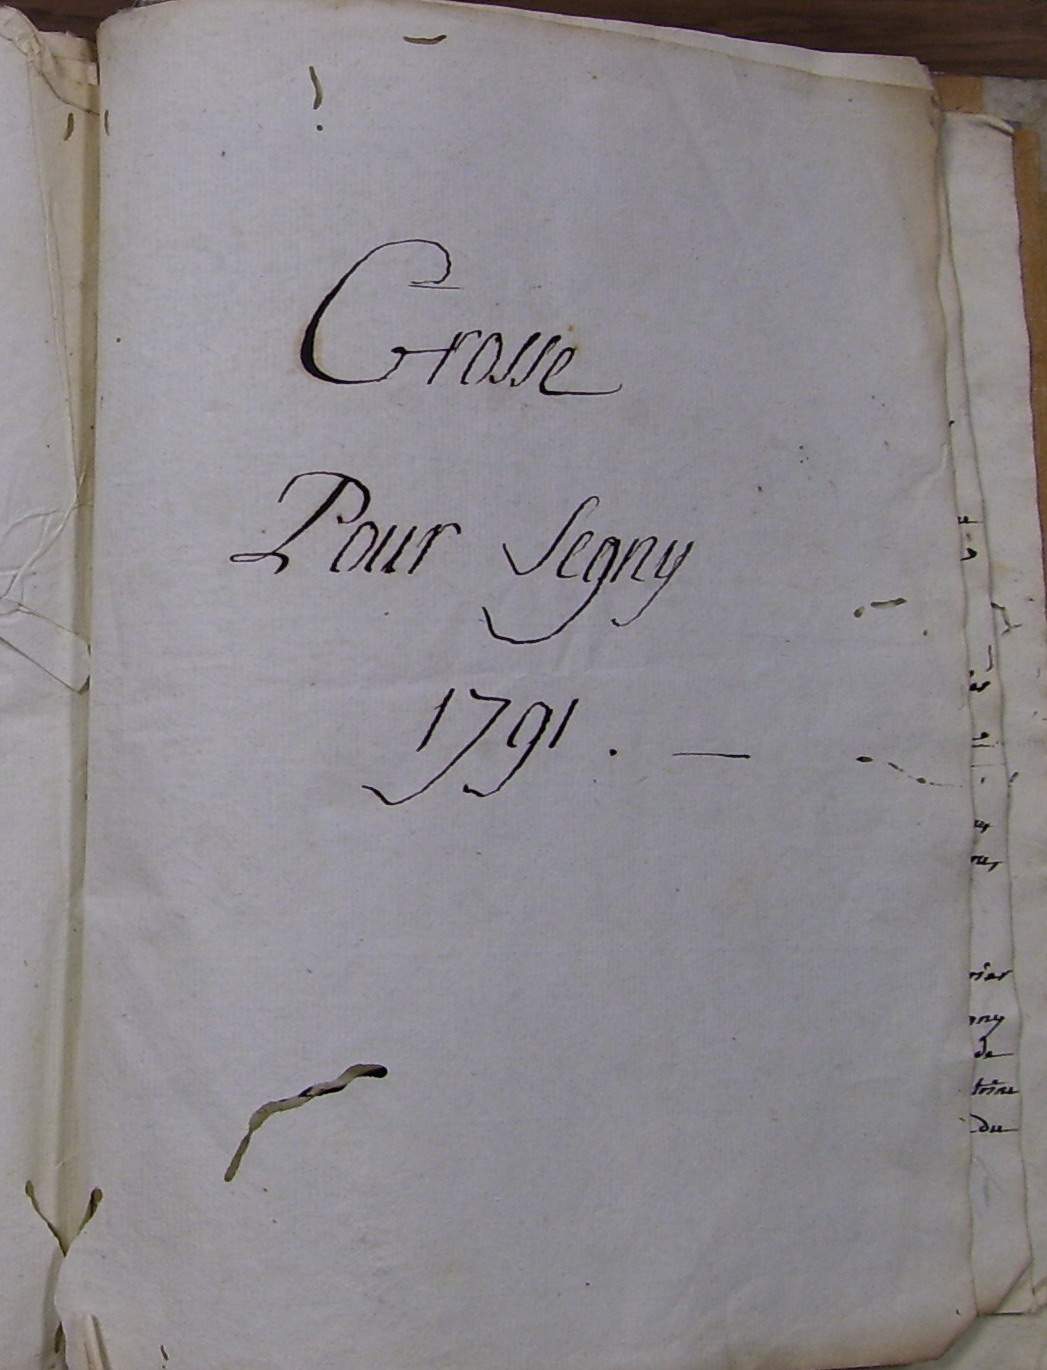 Grosse
Pour Segny
1791. —
de
du